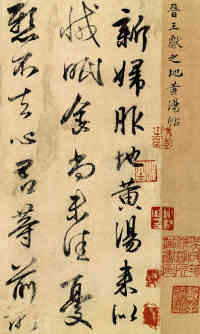 晉王獻之地黃湯帖
新婦服地黃湯來似
減眠食尚未佳憂
懸不去心君等前